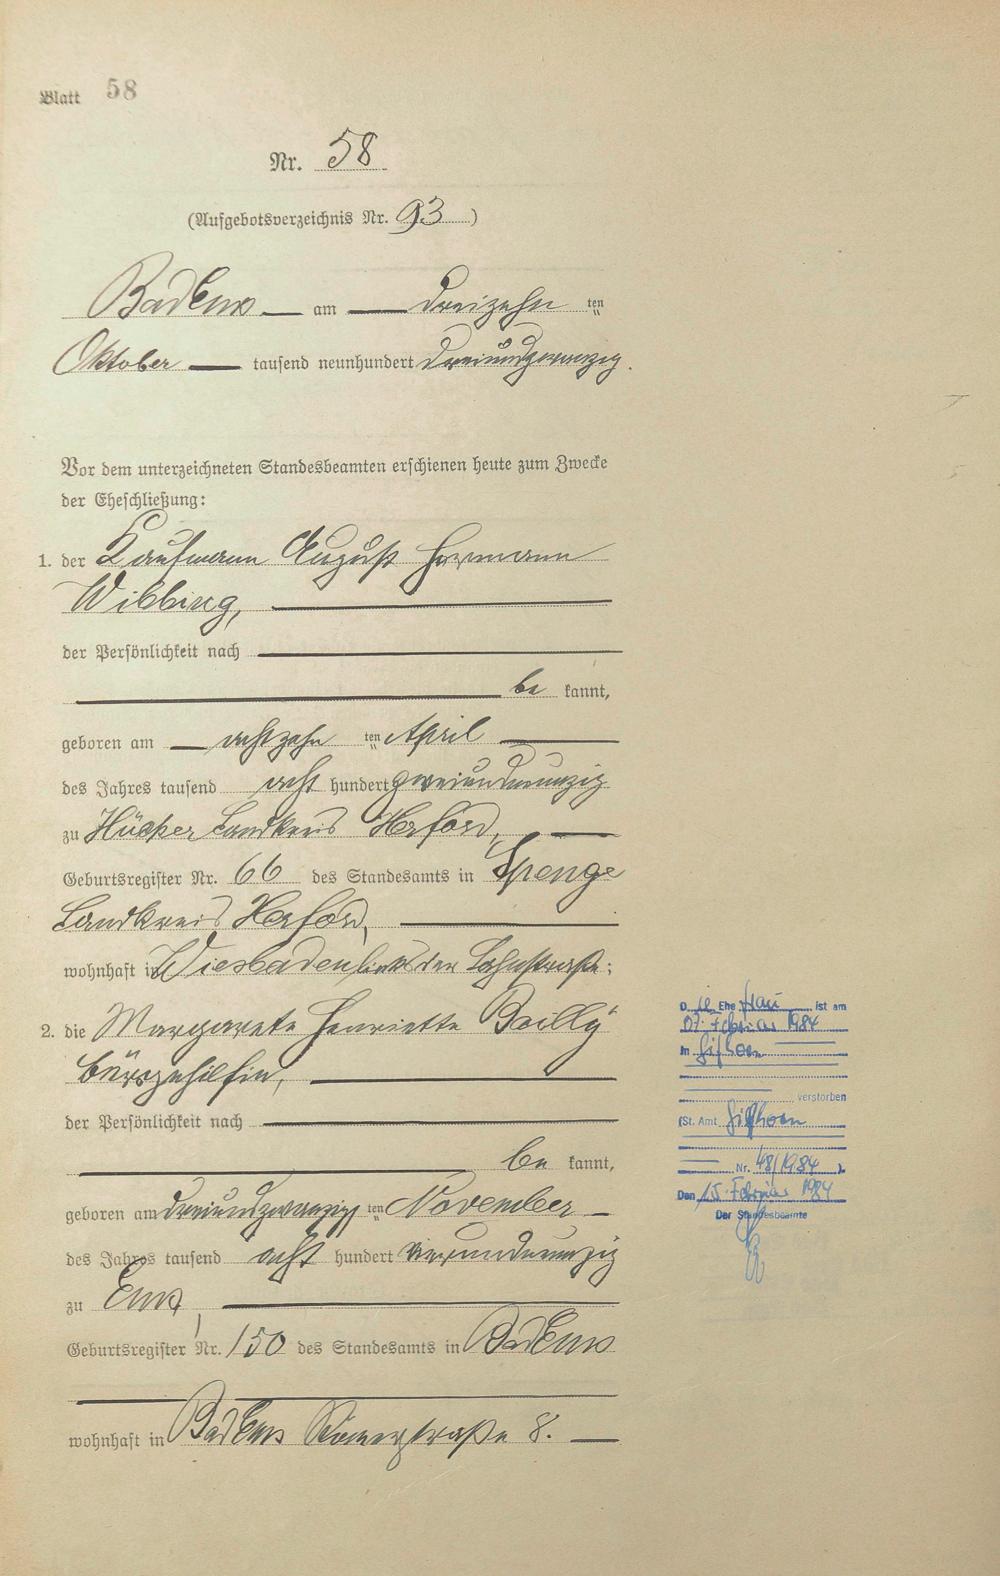 Blatt 58
Nr. 58
(Aufgebotsverzeichnis Nr. 93)
Bad Ems am dreizehn ten
Oktober tausend neunhundert dreiundzwanzig.
Vor dem unterzeichneten Standesbeamten erschienen heute zum Zwecke
der Eheschließung:
1. der Kaufmann August Hermann
Wibbing,
der Persönlichkeit nach
be kannt,
geboren am achtzehn ten April
des Jahres tausend acht hundert zweiundneunzig
zu Hücker Landkreis Herford,
Geburtsregister Nr. 66 des Standesamts in Spenge
Landkreis Herford,
wohnhaft in Wiesbaden der
2. die Margarete Henriette Bailly
Bürogehilfin,
der Persönlichkeit nach
be kannt,
geboren am dreiundzwanzig ten November
des Jahres tausend acht hundert vierundneunzig
zu Ems,
Geburtsregister Nr. 150 des Standesamts in Bad Ems
wohnhaft in Bad Ems Römerstraße 8.
D ie Ehe frau ist am
07. Februar 1984
in Gifhorn
verstorben
(St. Amt Gifhorn
Nr. 48/1984 ).
Den 15. Februar 1984
Der Standesbeamte